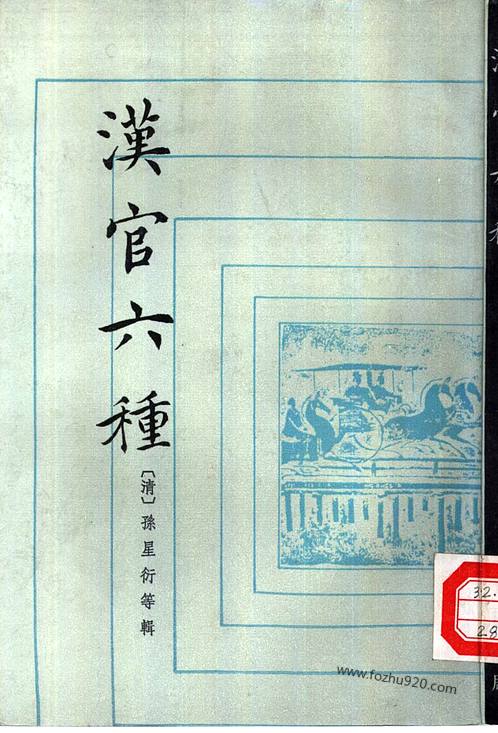 漢官六種
〔清〕孫星衍等輯
32.
28
www.fozhu920.com